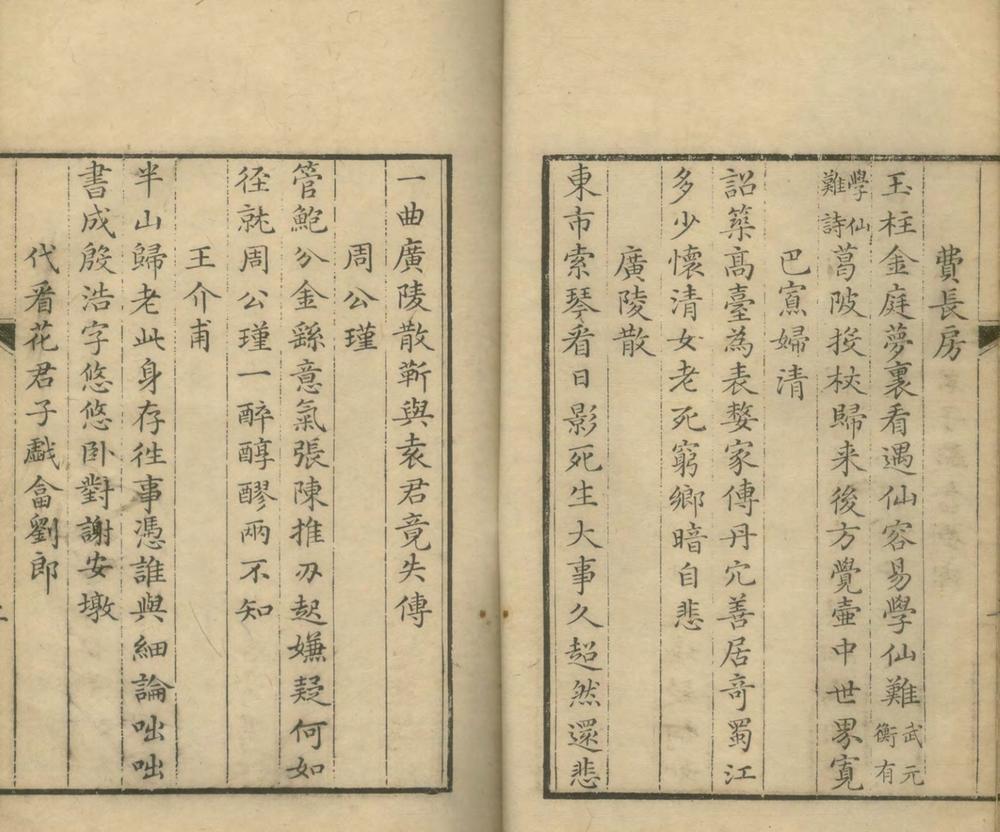 費長房
玉柱金庭夢裏看遇仙容易學仙難武元衡有
學仙難詩葛陂投杖歸来後方覺壷中世界寛
巴寡婦清
詔築髙臺為表嫠家傳丹穴善居竒蜀江
多少懷清女老死窮鄉暗自悲
廣陵散
東市索琴看日影死生大事久超然還悲
一曲廣陵散靳與袁君竟失傳
周公瑾
管鮑分金繇意氣張陳推刃起嫌疑何如
徑就周公瑾一醉醇醪兩不知
王介甫
半山歸老此身存徃事憑誰與細論咄咄
書成殷浩字悠悠卧對謝安墩
代看花君子戲畣劉郎